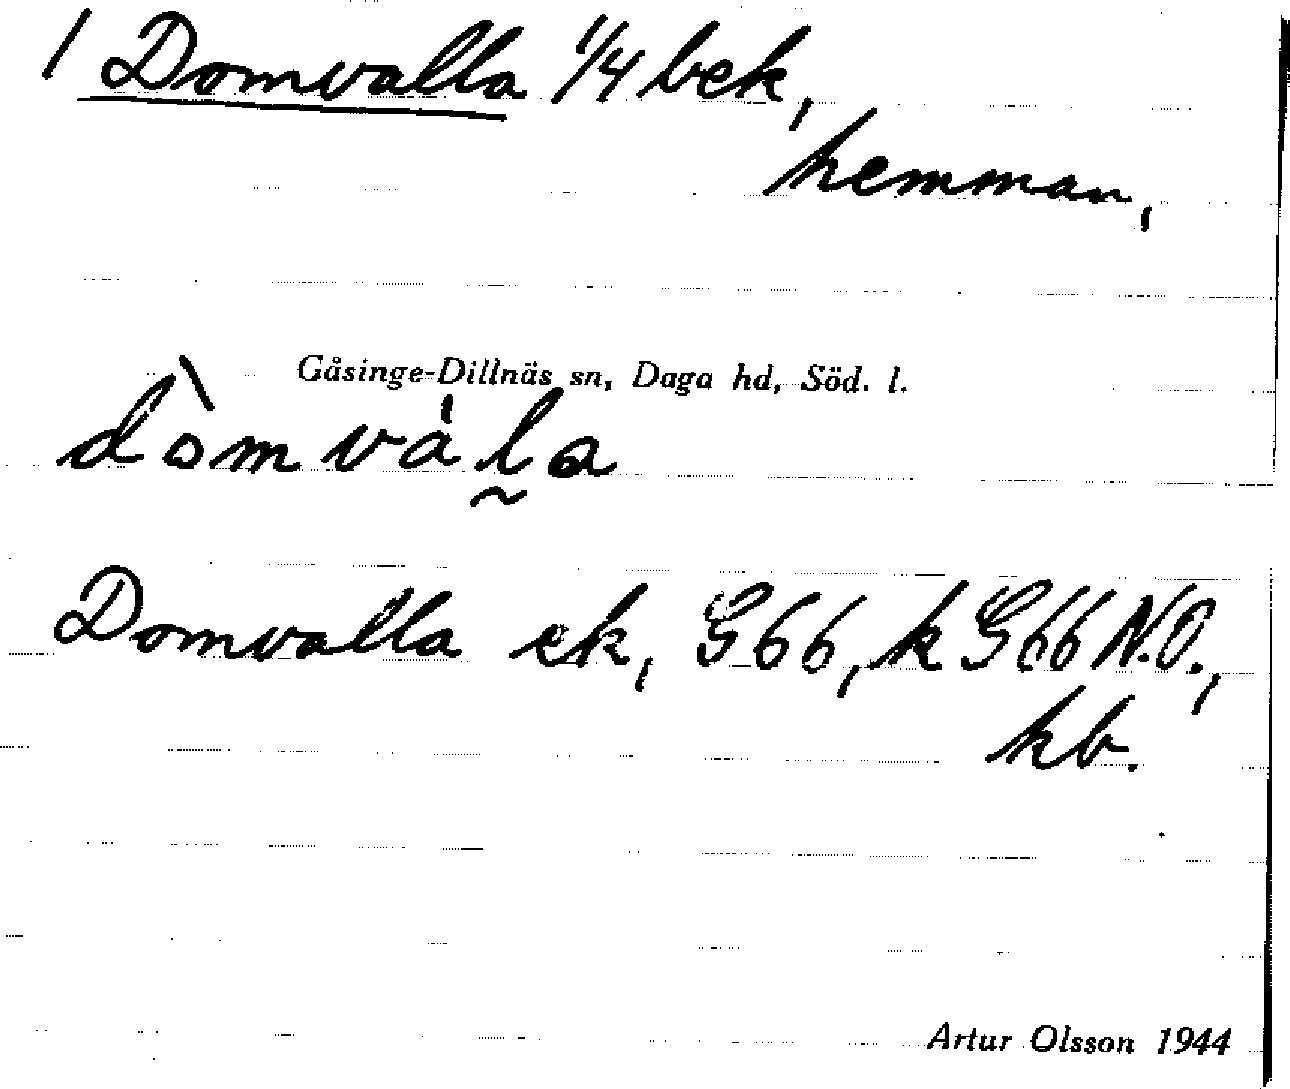 / Domvalla 1/4 bek,
hemman,
Gåsinge-Dillnäs sn, Daga hd, Söd. l.
dòmvȧl̰a
Domvalla ek, G66, k G66 N.O.,
kb.
Artur Olsson 1944